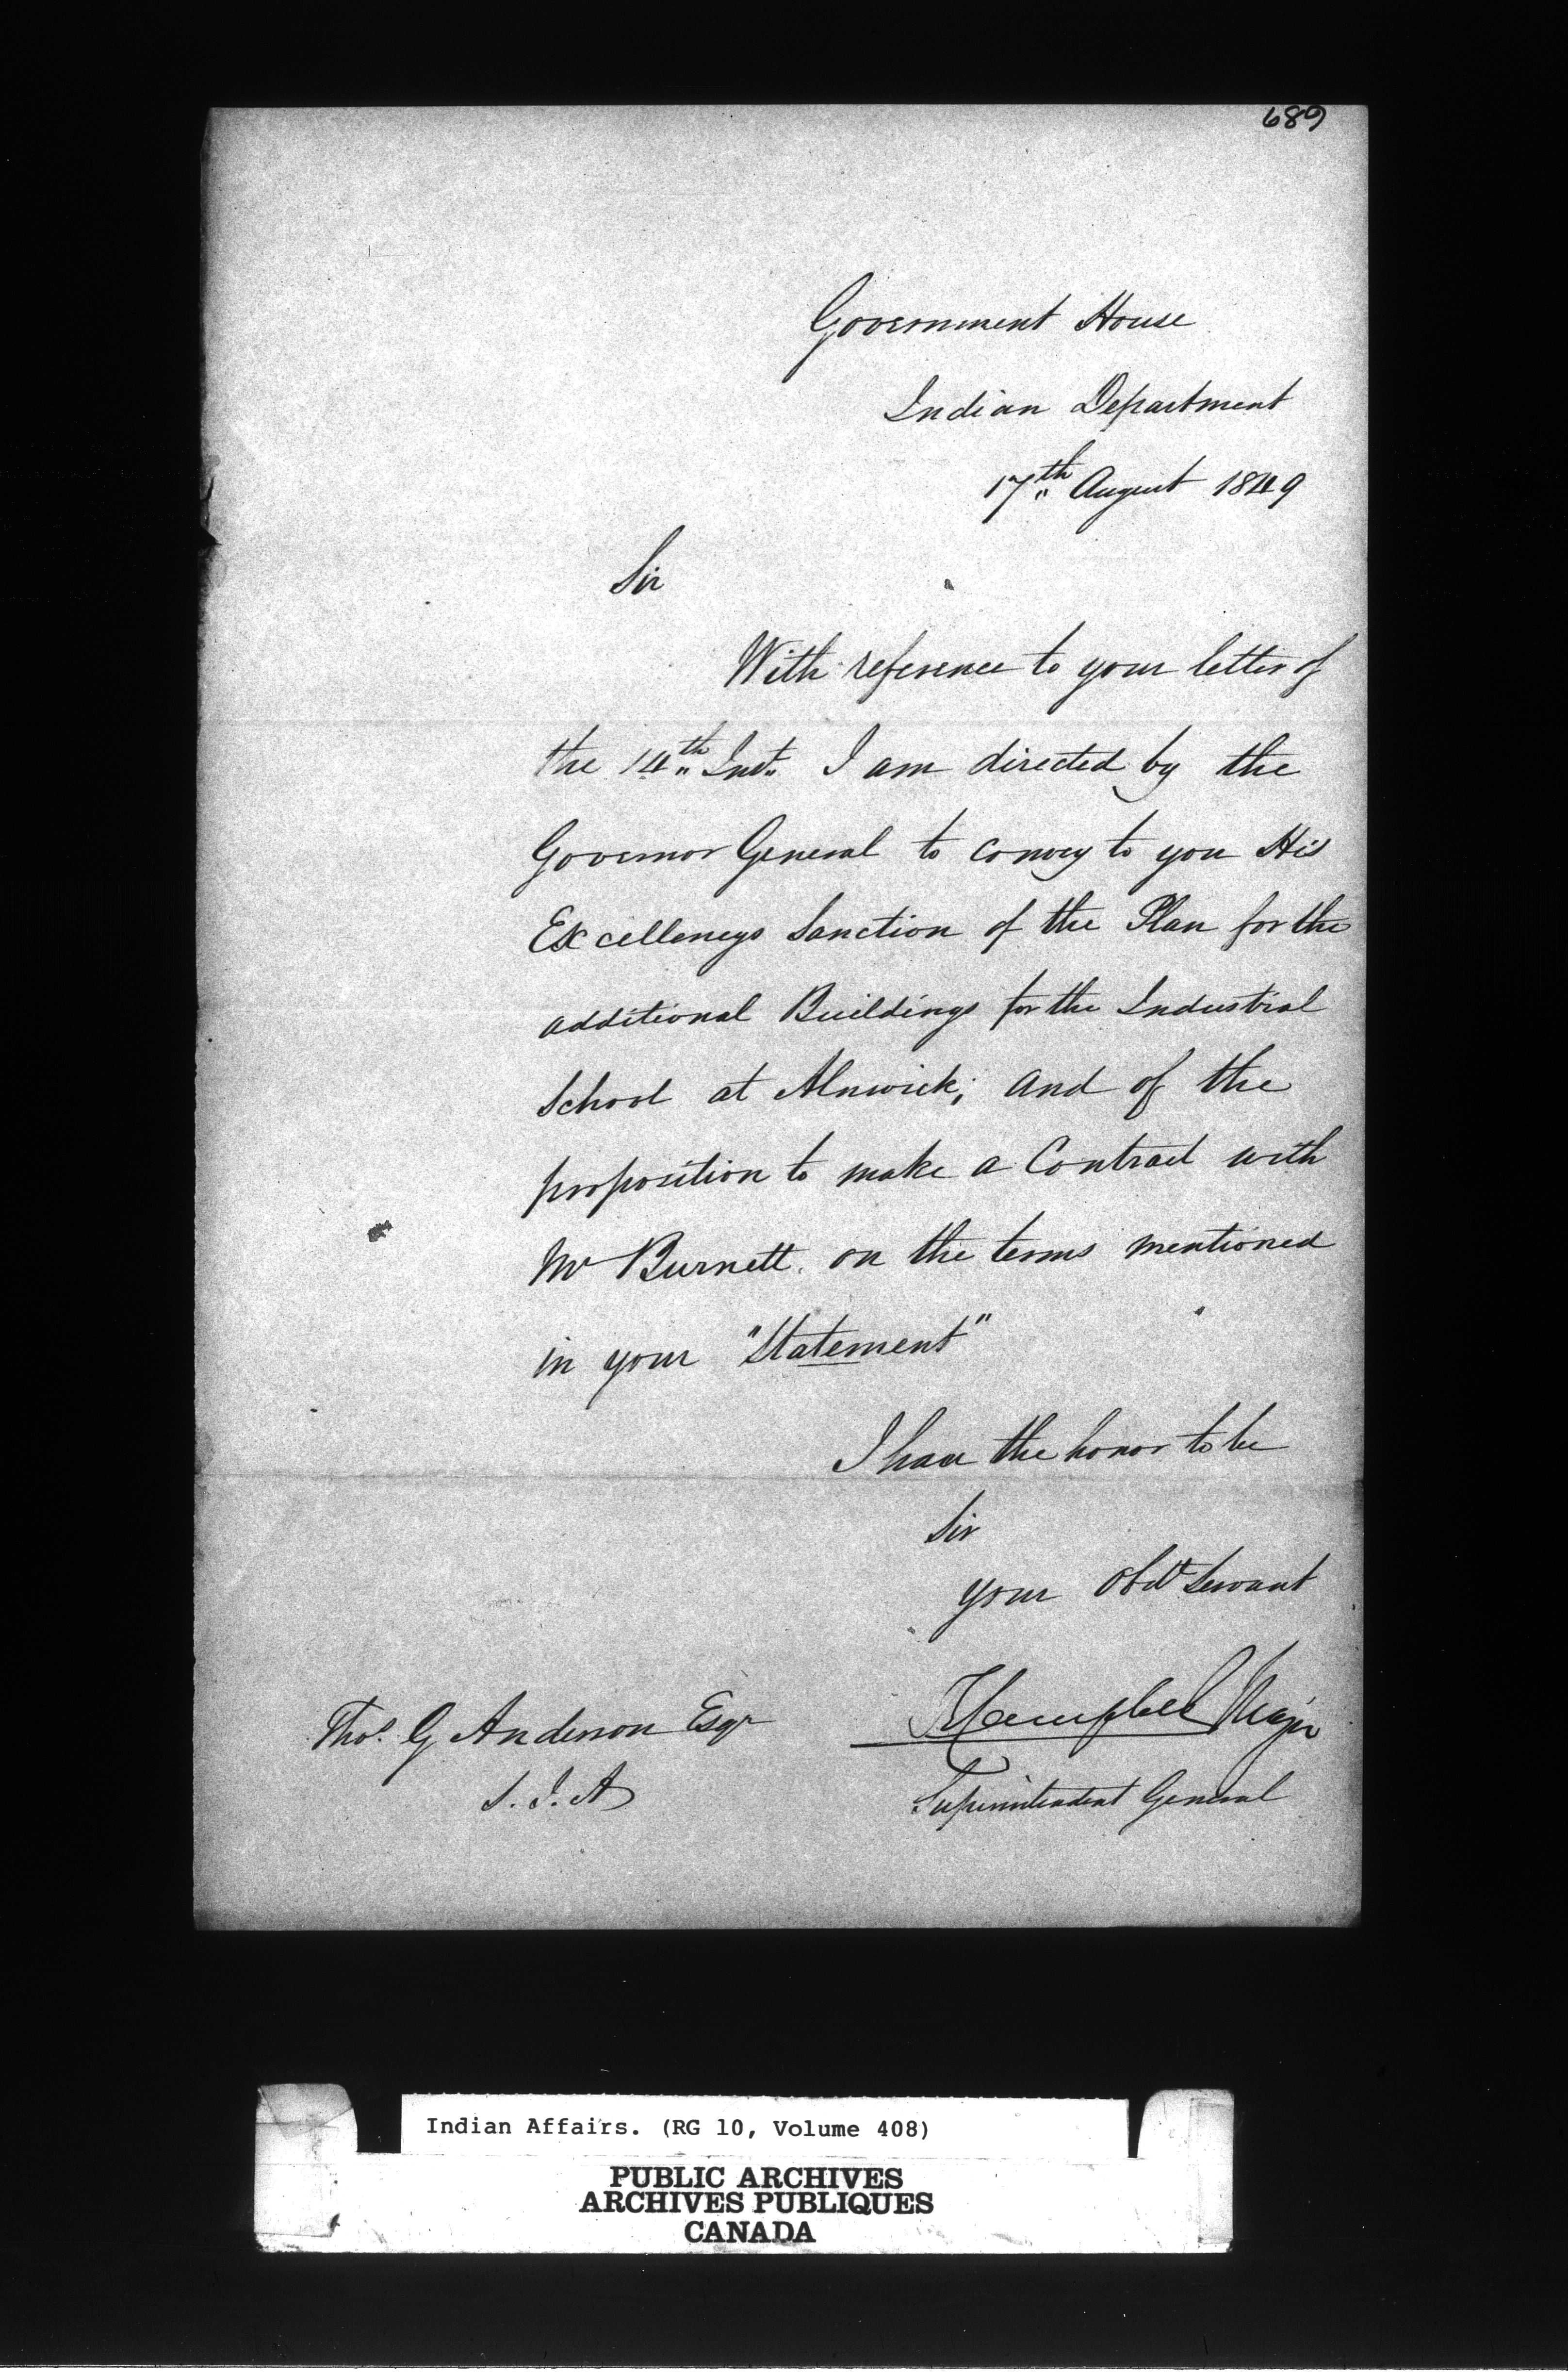 689
Government House
Indian Department
17th August 1849
Sir
With reference to your letter of
the 14th Inst. I am directed by the
Governor General to convey to you His
Excellencys Sanction of the Plan for the
additional Buildings for the Industrial
School at Alnwick; and of the
proposition to make a Contract with
Mr Burnett. on the terms mentioned
in your "Statement"
I have the honor to be
Sir
your Obdt Servant
TCampbell Major
Superintendent General
Thos. G Anderson Esqr
S. I. A
Indian Affairs. (RG 10, Volume 408)
PUBLIC ARCHIVES
ARCHIVES PUBLIQUES
CANADA